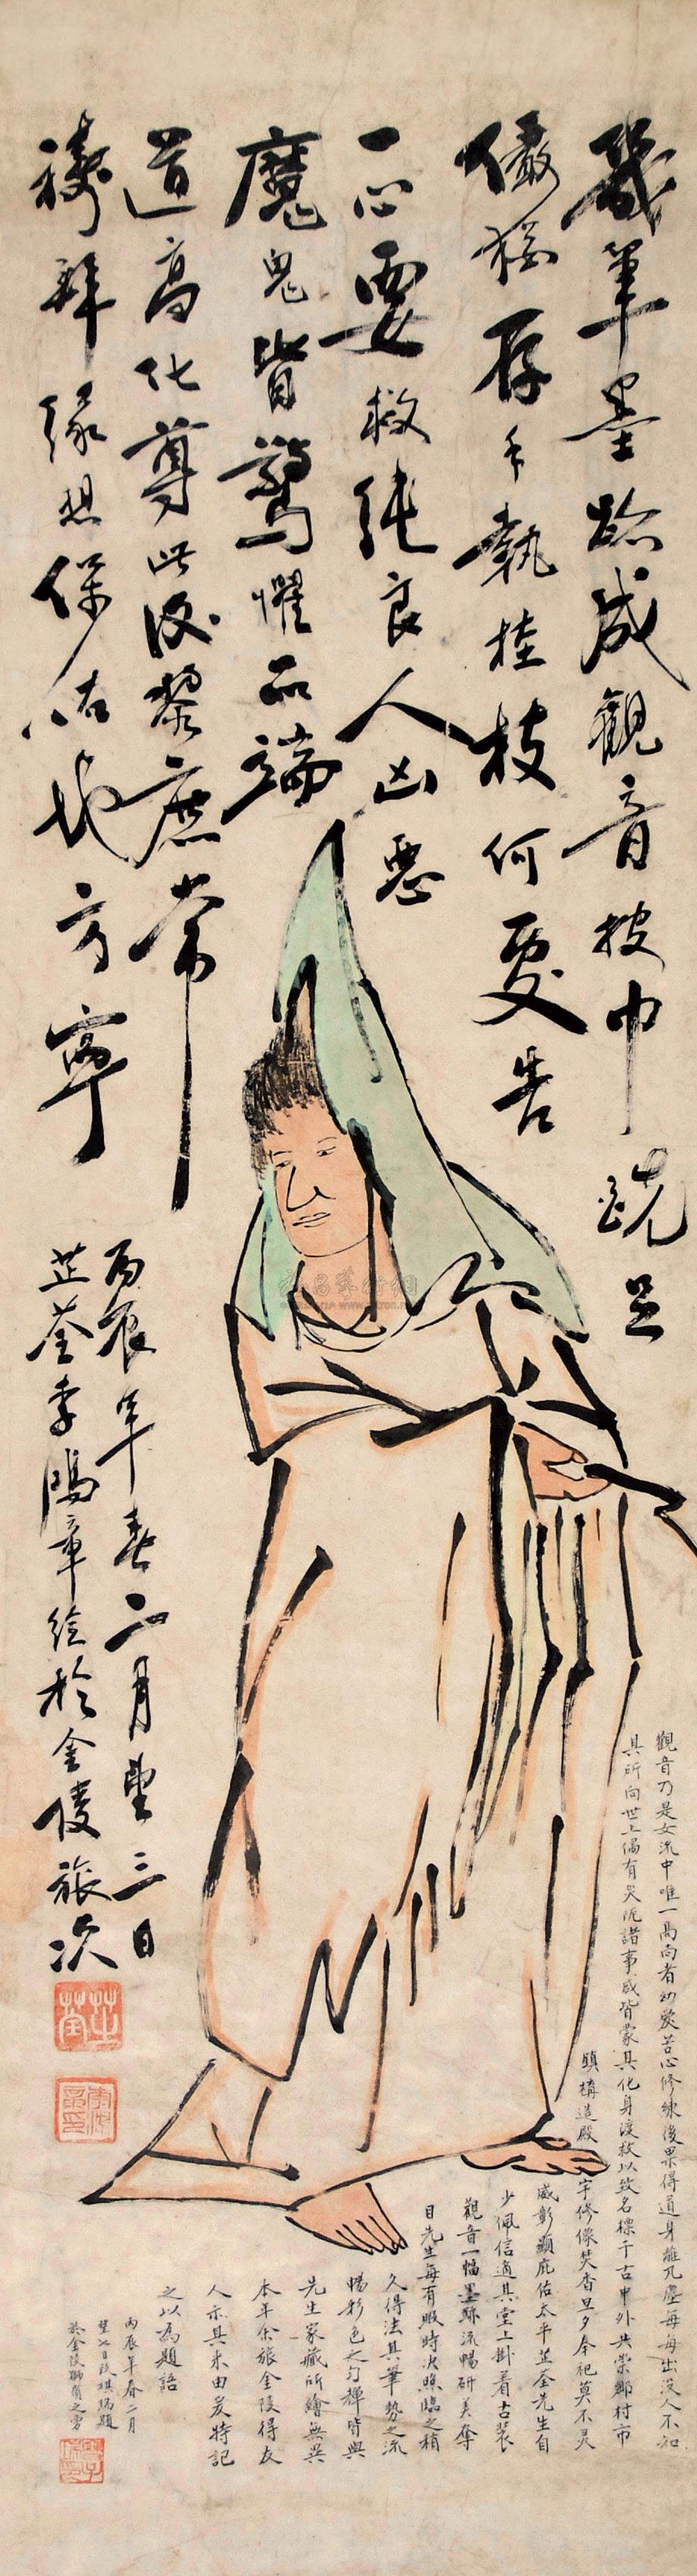 幾筆墨跡成觀音披巾跣足
儼然存手執桂枝何要告
一心要救純良人凶惡
魔鬼皆驚懼品端
道高化尊此後黎庶常
禱拜緣想保佑地方寧
丙辰年春二月望三日
芷荃李鴻章繪於金陵旅次
觀音乃是女流中唯一高尚者幼歲苦心修練後果得道身離凡塵每每出沒人不知
其所向世上偶有災阨諸事咸皆蒙其化身渡救以致名標千古中外共崇鄉村市
鎮構造殿宇修像焚香旦夕奉祀莫不灵
感彰顯庇佑太平芷荃先生自
少佩信適其堂上掛着古裝
觀音一幅墨跡流暢研美奪
目先生每有暇時次照臨之稍
久得法其筆勢之流
暢彩色之勻稱皆與
先生家藏所繪無異
本年余旅金陵得友
人示其来由爰特記
之以為題語
丙辰年春二月